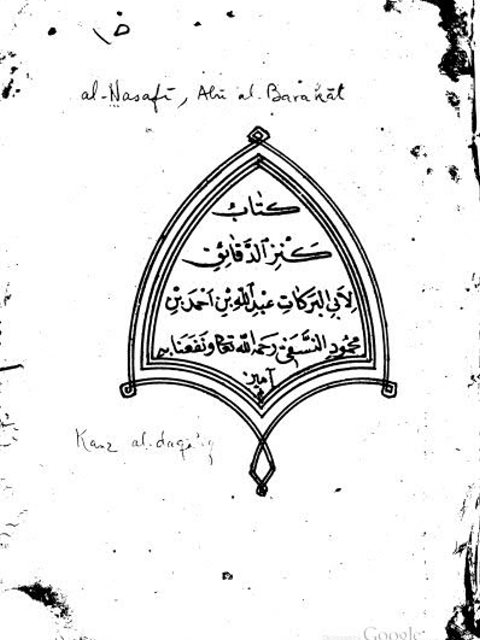 ض
al-Nasafī, Abū al-Barakāt
كتاب
كَنْزِ الدَّقَائِقِ
لِأَبِي البَرَكَاتِ عَبْدِ اللهِ بْنِ اَحْمَدَ بْنِ
مَحْمُودِ النَّسَفِيِّ رَحِمَهُ اللهُ تَعَالى وَنَفَعَنَا بِهِ
آمين
Kanz al-daqā'iq
Digitized by Google